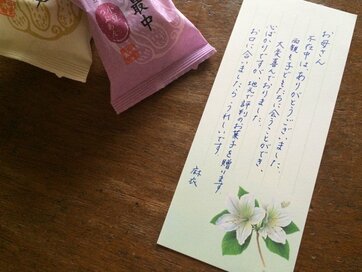 お母さん
不在中は、ありがとうございました。
両親も子どもたちに会うことができ、
大変喜んでおりました。
心ばかりですが、地元で評判のお菓子を贈ります。
お口に合いましたら、うれしいです。
麻衣
最中